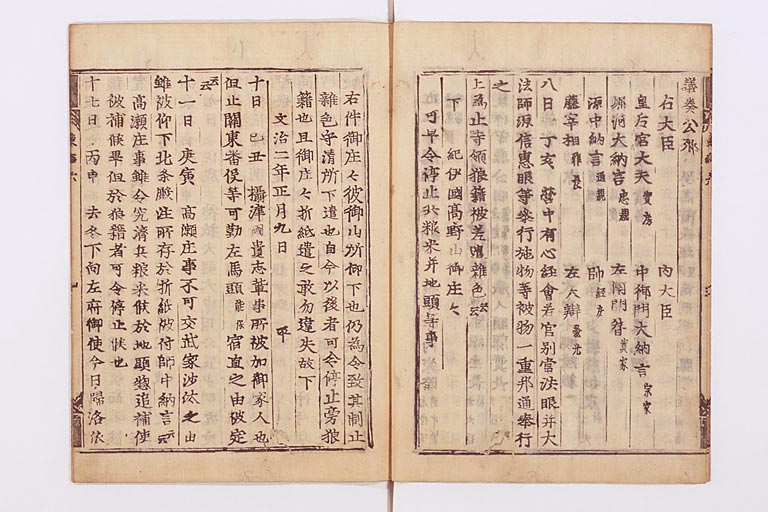 議奏公卿
右大臣 内大臣
皇后宮大夫實房 中御門大納言宗家
堀河大納言忠親 左衛門督實家
源中納言通親 帥経房
藤宰相雅長 左大辯兼光
八日 丁亥 營中有心経會若宮別當法眼并大
法師源信恵眼等奉行施物等被物一重邦通奉行
之
上為止寺領狼藉被差遣雑色云云
下 紀伊國高野山御庄々
可早令停止兵粮米并地頭等事
右件御庄々彼御山所御下也仍為令致其制止
雑色守清所下遣也自今以後者可令停止旁狼
藉也且御庄々折紙遣之敢勿違失故下
文治二年正月九日
十日 己丑 攝津國貴志輩事所被加御家人也
但止關東番役等可勤左馬頭能保宿直之由被定
云云
十一日 庚寅 高瀬庄事不可交武家渉汰之由
雖被仰下北条殿注所存於折紙被付師中納言云云
高瀬庄事雖令究濟兵粮米候於地頭惣追補使
被補候畢但於狼籍者可令停止候也
十七日 丙申 去冬下向左府御使今日歸洛依